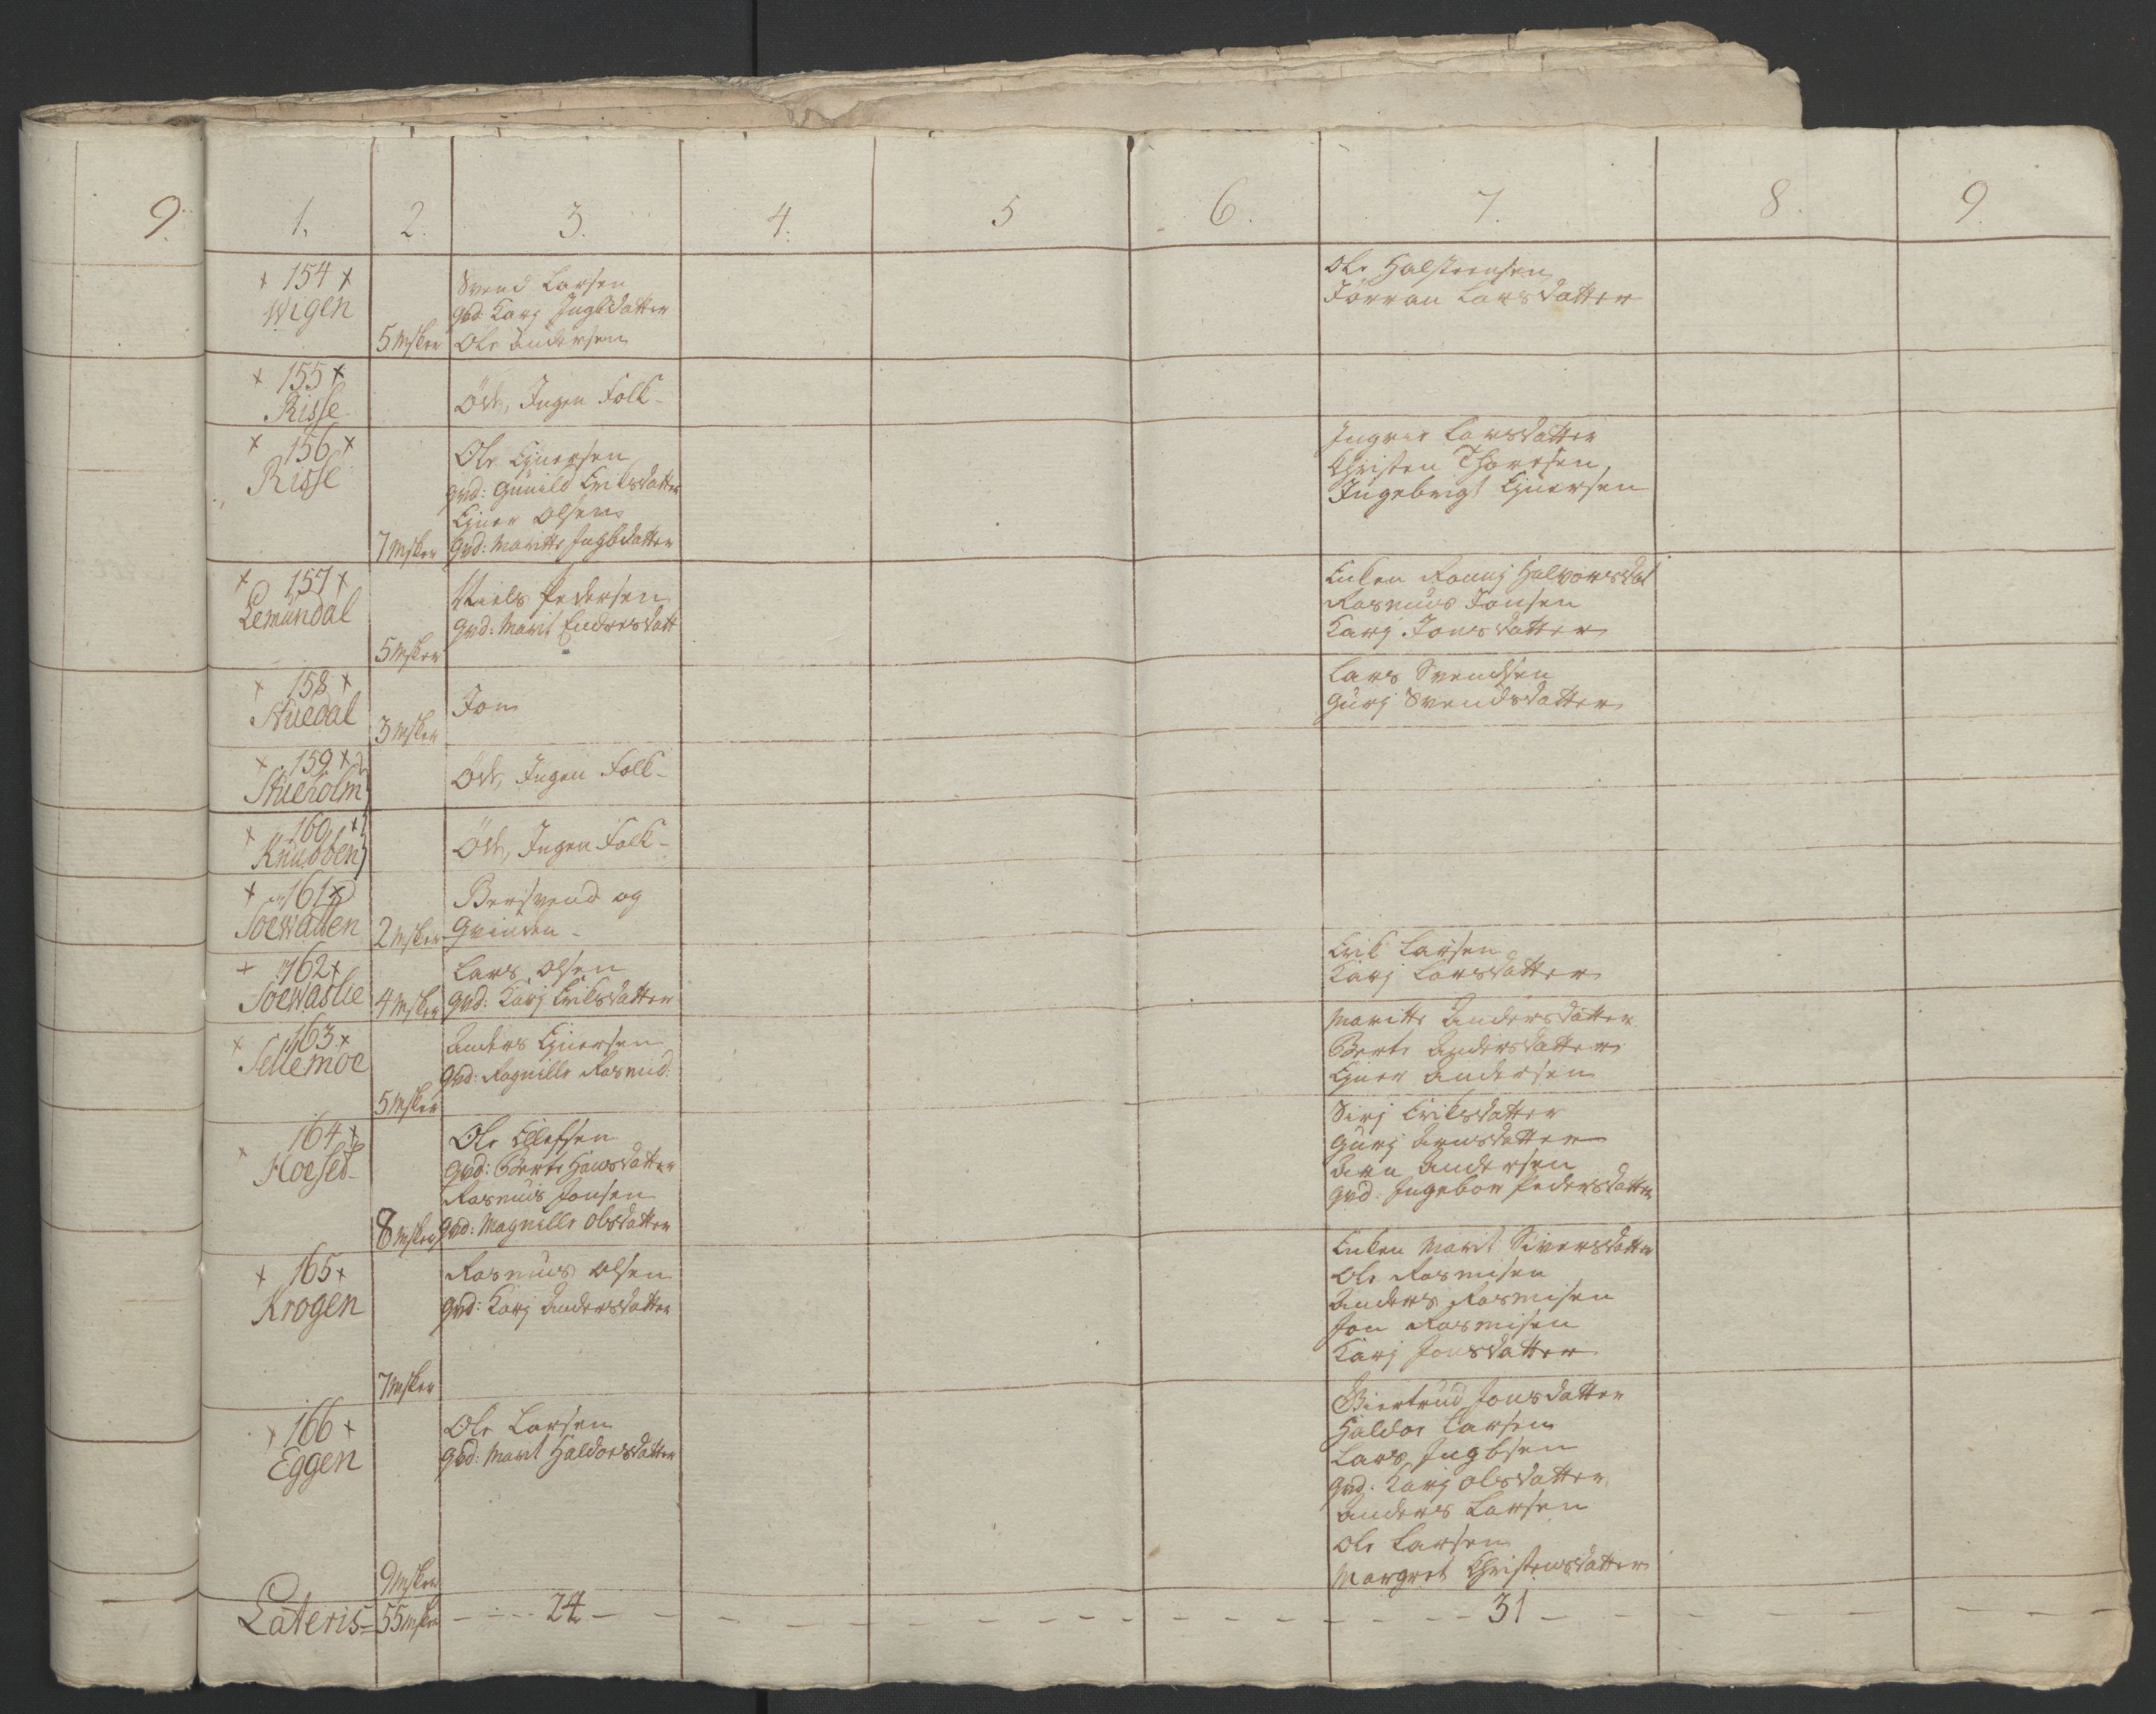 9.
1. 2. 3. 4. 5 6. 7. 8. 9.
+ 154 +
Wigen
5 Msker
Svend Larsen
qvd: Karj Ingbdatter
Ole Andersen
Ole Halsteensen
Jörran Larsdatter
+ 155 +
Risse
Öde, Ingen Folk -
+ 156 +
Risse
7 Msker
Ole Ejnersen
qvd: Gunild Eriksdatter
Ejner Olsen
qvd: Maritte Ingbdatter
Ingrie Larsdatter
Christen Thoresen,
Ingebrigt Ejnersen
+ 157 +
Lemundal
5 Msker
Niels Pedersen
qvd: Marit Endresdatt
Enken Ronnj Halvorsdat
Rasmus Jonsen
Karj Jonsdatter
+ 158 +
Stuedal
3 Msker
Jon
Lars Svendsen
Gurj Svendsdatter
+ 159 +
Stueholm
Öde, Ingen Folk -
+ 160 +
Knubben
Öde, Ingen Folk -
+ 161 +
Soewatten
2 Msker
Bersvend og
Qvinden -
+ 162 +
Soewaslie
4 Msker
Lars Olsen
qvd: Karj Eriksdatter
Erik Larsen
Karj Larsdatter
+ 163 +
Sellemoe
5 Msker
Anders Ejnersen
qvd: Ragnille Rasmusd:
Maritte Andersdatter
Berte Andersdatter
Ejner Andersen
+ 164 +
Hoesed
8 Msker
Ole Ellefsen
qvd: Berte Hansdatter
Rasmus Jonsen
qvd: Magnille Olsdatter
Sirj Eriksdatter
Gurj Arnsdatter
Arn Andersen
qvd: Ingebor Pedersdatter
+ 165 +
Krogen
7 Msker
Rasmus Olsen
qvd: Karj Andersdatter
Enken Marit Siversdatter
Ole Rasmisen
Anders Rasmisen
Jon Rasmisen
Karj Jonsdatter
+ 166 +
Eggen
9 Msker
Ole Larsen
qvd: Marit Haldorsdatter
Giertrud Jonsdatter
Haldor Larsen
Lars Ingbsen
qvd: Karj Olsdatter
Anders Larsen
Ole Larsen
Margret Christensdatter
Lateris = 55 Msker - - - - 24 - - - - - - - - - 31 - - - - -